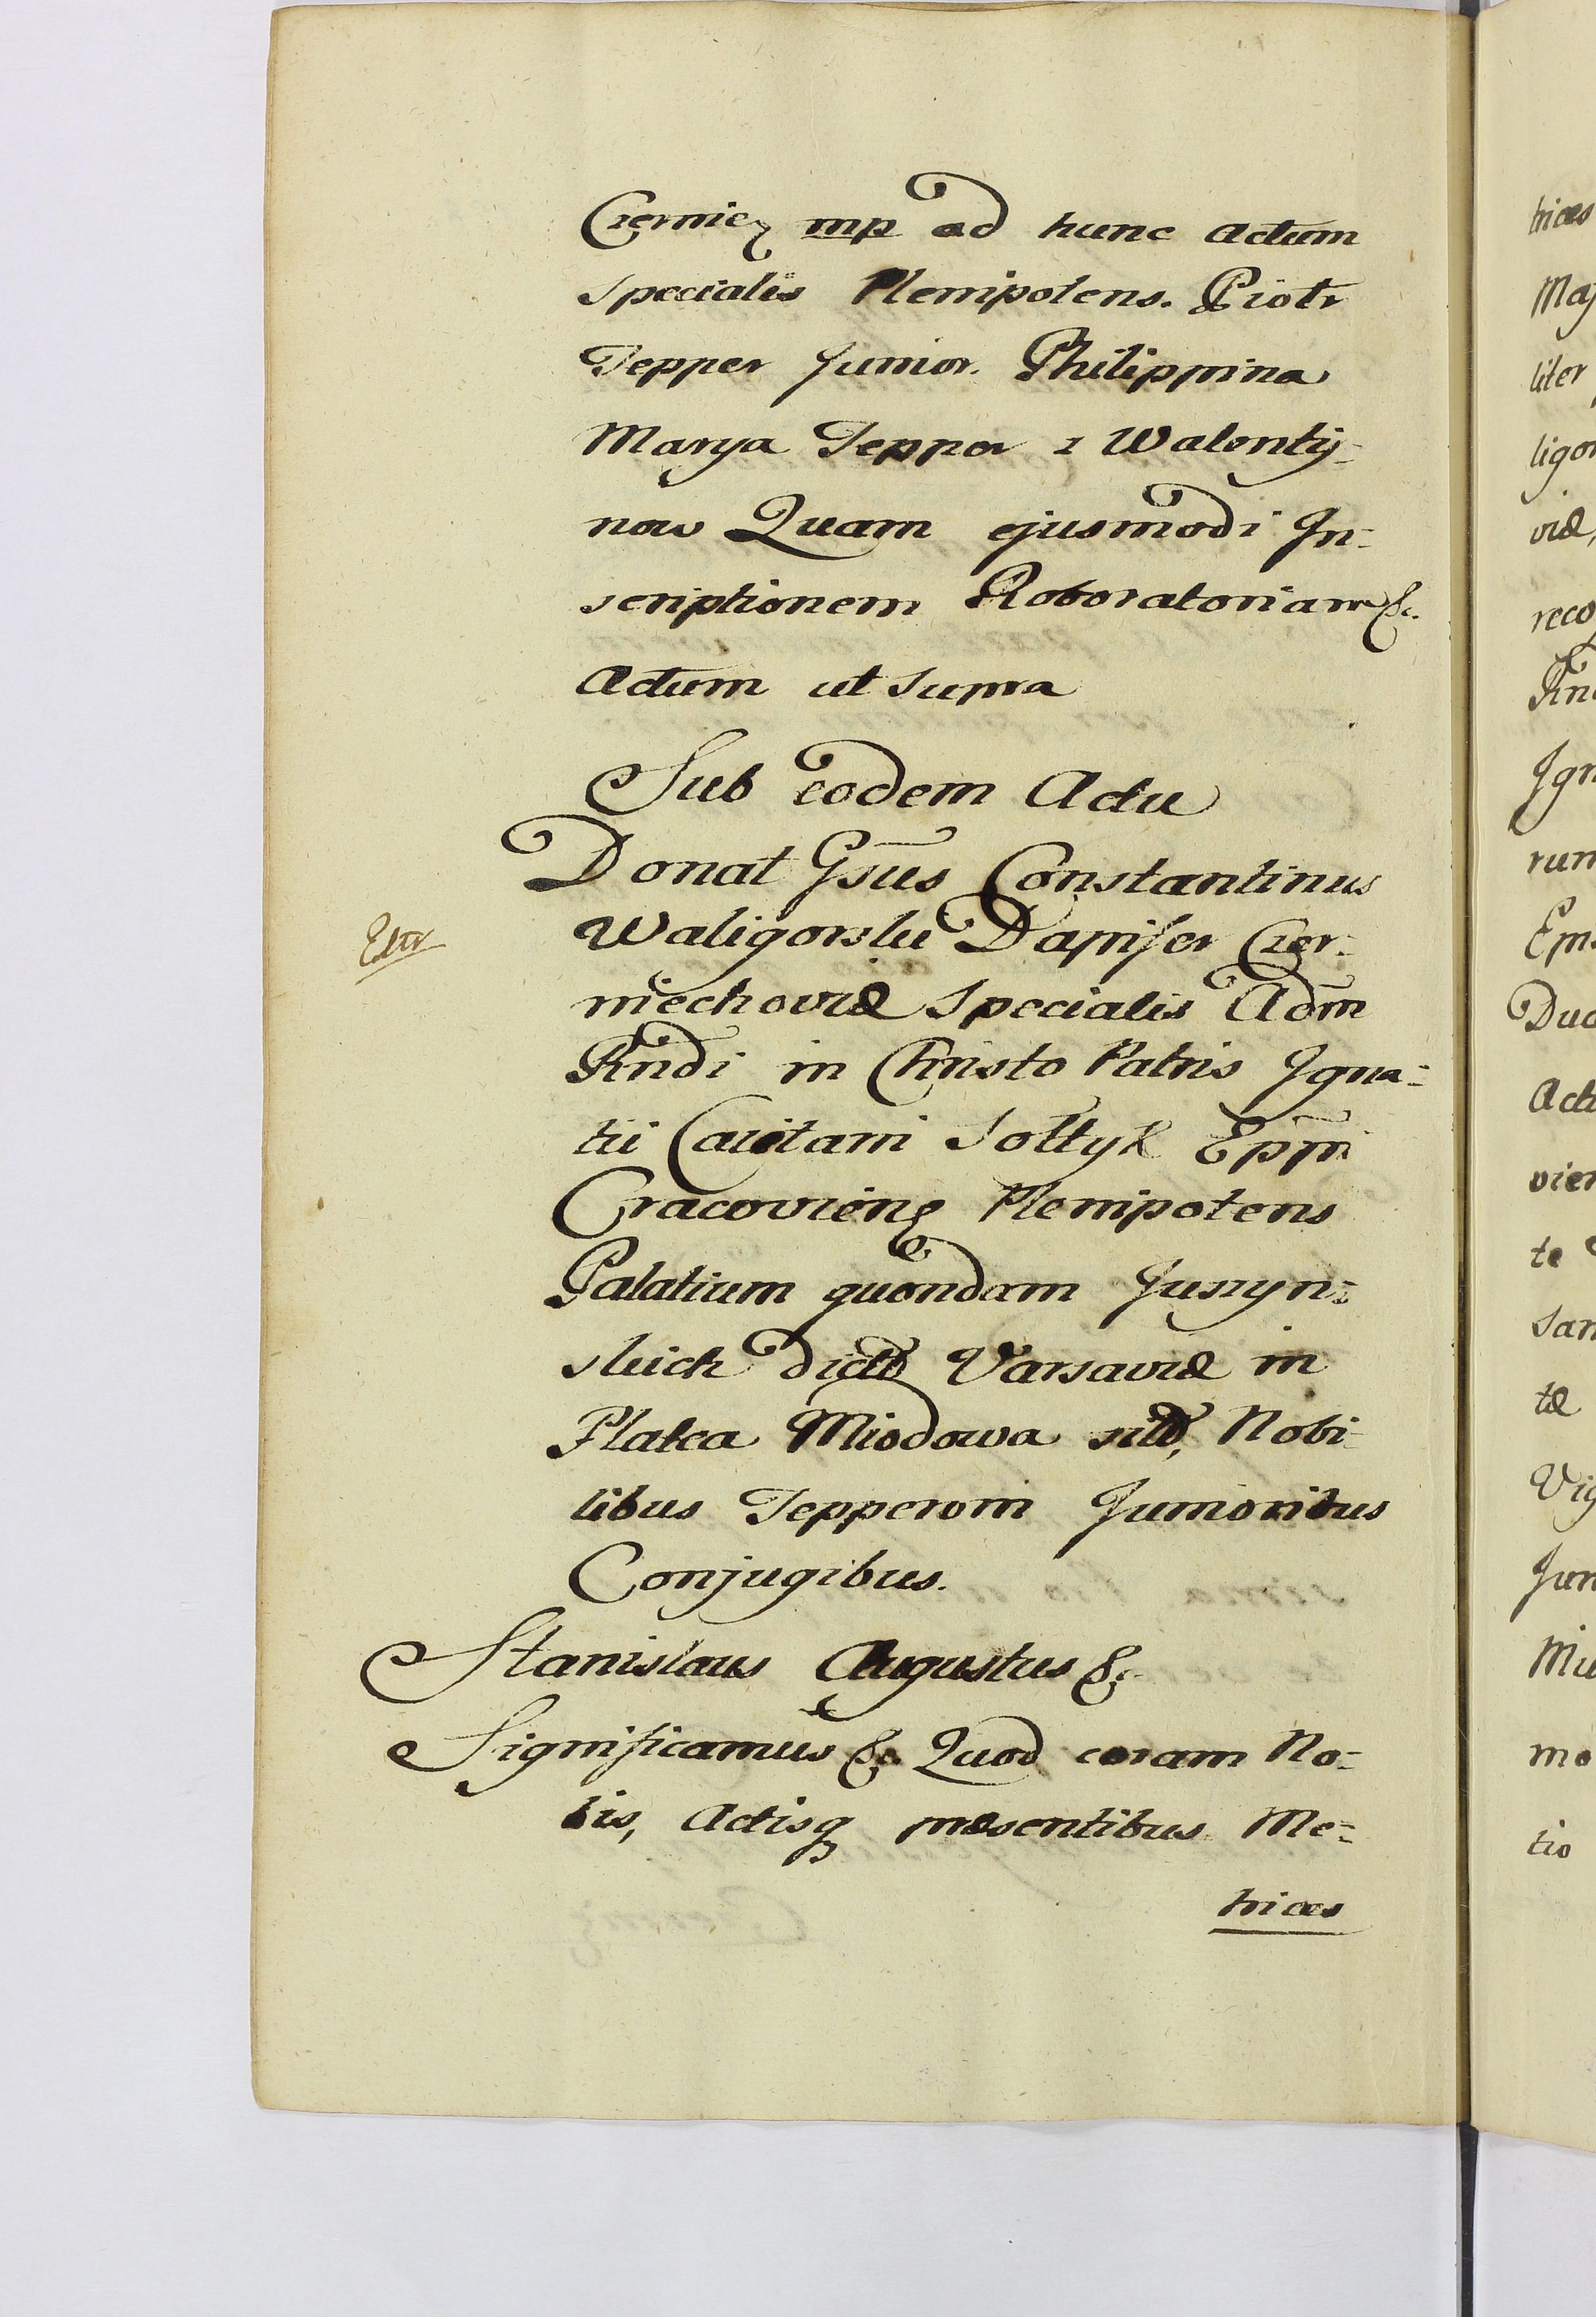 Czernię mp ad hunc actum
specialis Plenipotens. Piotr
Tepper Junior. Philippina
Marya Tepper z Walenty-
now Quam ejusmodi In-
scriptionem Roboratoriam &c.
Actum ut supra
Sub eodem Actu
Donat Gsus Constantinus
Waligorski Dapifer Czer-
niechoviæ specialis Adm
Rndi in Christo Patris Igna-
tii Caietani Sołtyk Eppi
Cracovien Plenipotens
Palatium quondam Juszyn-
skich dict Varsaviæ in
Platea Miodowa sit, Nobi-
libus Tepperom Junioribus
Conjugibus.
Stanislaus Augustus &c.
Significamus &c. Quod coram No-
bis, Actisq præsentibus Me-
trices
trices
Maj
liter
ligor
viæ,
reco
Rn
Ign
rum
Epi
Duc
Act
vien
te
San
tæ
Vig
Jun
Mi
mo
tio